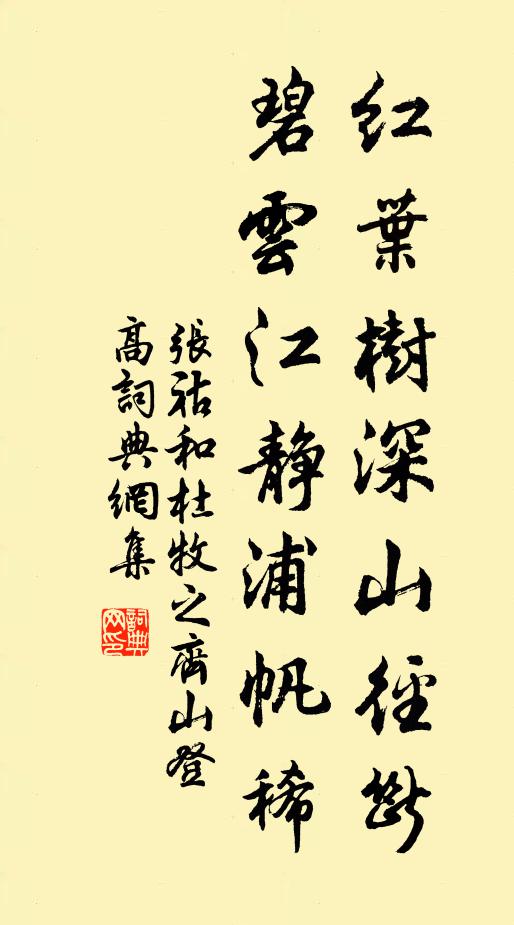 紅葉樹深山徑斷
碧雲江静浦帆稀
張祜和杜牧之齊山登
高詞典網集
詞典網印